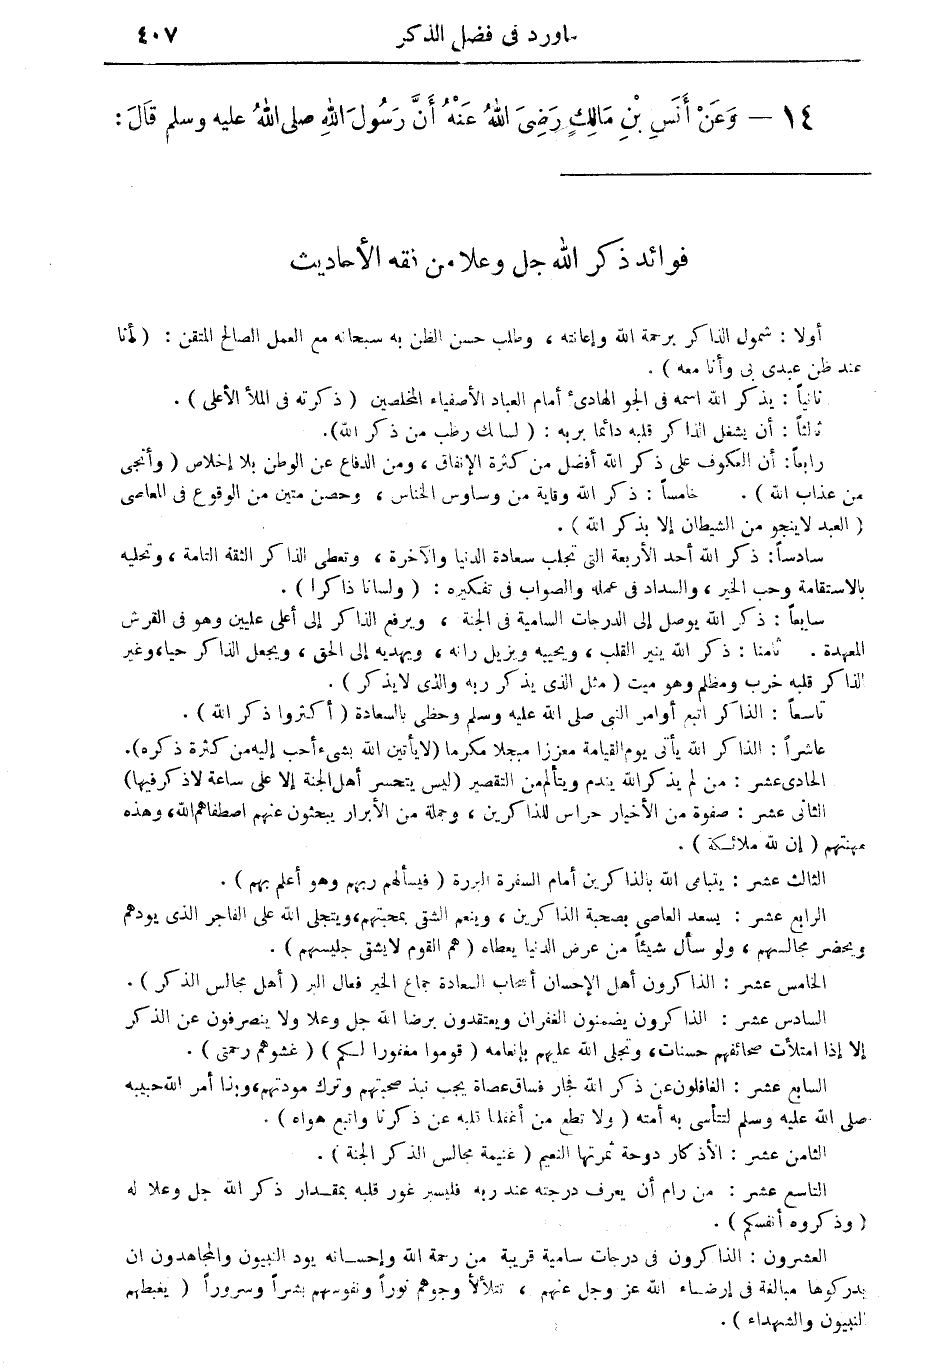 ماورد فى فضل الذكر ٤٠٧
١٤ — وَعَنْ أَنَسِ بْنِ مَالِكٍ رَضِيَ اللهُ عَنْهُ أَنَّ رَسُولَ اللهِ صلى اللهُ عليه وسلم قَالَ :
فوائد ذكر الله جل وعلا من فقه الأحاديث
أولا : شمول الذاكر برحمة الله وإعانته ، وطلب حسن الظن به سبحانه مع العمل الصالح المتقن : ( أنا
عند ظن عبدى بى وأنا معه ) .
ثانياً : يذكر الله اسمه فى الجو الهادئ أمام العباد الأصفياء المخلصين ( ذكرته فى الملأ الأعلى ) .
ثالثاً : أن يشغل الذاكر قلبه دائما بربه : ( لسانك رطب من ذكر الله).
رابعاً: أن العكوف على ذكر الله أفضل من كثرة الإنفاق ، ومن الدفاع عن الوطن بلا إخلاص ( وأنجى
من عذاب الله ) . خامساً : ذكر الله وقاية من وساوس الخناس ، وحصن متين من الوقوع فى المعاصى
( العبد لاينجو من الشيطان إلا بذكر الله ) .
سادساً: ذكر الله أحد الأربعة التى تجلب سعادة الدنيا والآخرة ، وتعطى الذاكر الثقة التامة ، وتحليه
بالاستقامة وحب الخير ، والسداد فى عمله والصواب فى تفكيره : ( ولسانا ذاكرا ) .
سابعاً : ذكر الله يوصل إلى الدرجات السامية فى الجنة ، ويرفع الذاكر إلى أعلى عليين وهو فى الفرش
الممهدة . ثامنا : ذكر الله ينير القلب ، ويحييه ويزيل رانه ، ويهديه إلى الحق ، ويجعل الذاكر حياء، وغير
الذاكر قلبه خرب ومظلم وهو ميت ( مثل الذى يذكر ربه والذى لايذكر ) .
تاسعاً : الذاكر اتبع أوامر النبى صلى الله عليه وسلم وحظى بالسعادة ( أكثروا ذكر الله ) .
عاشراً : الذاكر الله يأتى يوم القيامة معززا مبجلا مكرما (لايأتين الله بشىء أحب إليه من كثرة ذكره).
الحادى عشر : من لم يذكر الله يندم ويتألم من التقصير (ليس يتحسر أهل الجنة إلا على ساعة لاذكر فيها)
الثانى عشر : صفوة من الأخيار حراس للذاكرين ، وجملة من الأبرار يبحثون عنهم اصطفاهم الله، وهذه
مهنتهم ( إن لله ملائكة ) .
الثالث عشر : يتباهى الله بالذاكرين أمام السفرة البررة ( فيسألهم ربهم وهو أعلم بهم ) .
الرابع عشر : يسعد العاصى بصحبة الذاكرين ، وينعم الشقى بمحبتهم، ويتجلى الله على الفاجر الذى يودهم
ويحضر مجالسهم ، ولو سأل شيئاً من عرض الدنيا يعطاه ( هم القوم لايشقى جليسهم ) .
الخامس عشر : الذاكرون أهل الإحسان أصحاب السعادة جماع الخير فعال البر ( أهل مجالس الذكر ) .
السادس عشر : الذاكرون يضمنون الغفران ويعتقدون برضا الله جل وعلا ولا ينصرفون عن الذكر
إلا إذا امتلأت صحائفهم حسنات، وتجلى الله عليهم بإنعامه ( قوموا مغفورا لكم ) ( غشوهم رحمتى ) .
السابع عشر : الغافلون عن ذكر الله فجار فساق عصاة يجب نبذ صحبتهم وترك مودتهم، وبذا أمر الله حبيبه
صلى الله عليه وسلم لتتأسى به أمته ( ولا تطع من أغفلنا قلبه عن ذكرنا واتبع هواه ) .
الثامن عشر : الأذكار دوحة ثمرتها النعيم ( غنيمة مجالس الذكر الجنة ) .
التاسع عشر : من رام أن يعرف درجته عند ربه فليسبر غور قلبه بمقدار ذكر الله جل وعلا له
( وذكروه أنفسكم ) .
العشرون : الذاكرون فى درجات سامية قريبة من رحمة الله وإحسانه يود النبيون والمجاهدون ان
يدركوها مبالغة فى إرضاء الله عز وجل عنهم ، تتلألأ وجوهم نوراً ونفوسهم بشراً وسروراً ( يغبطهم
النبيون والشهداء ) .